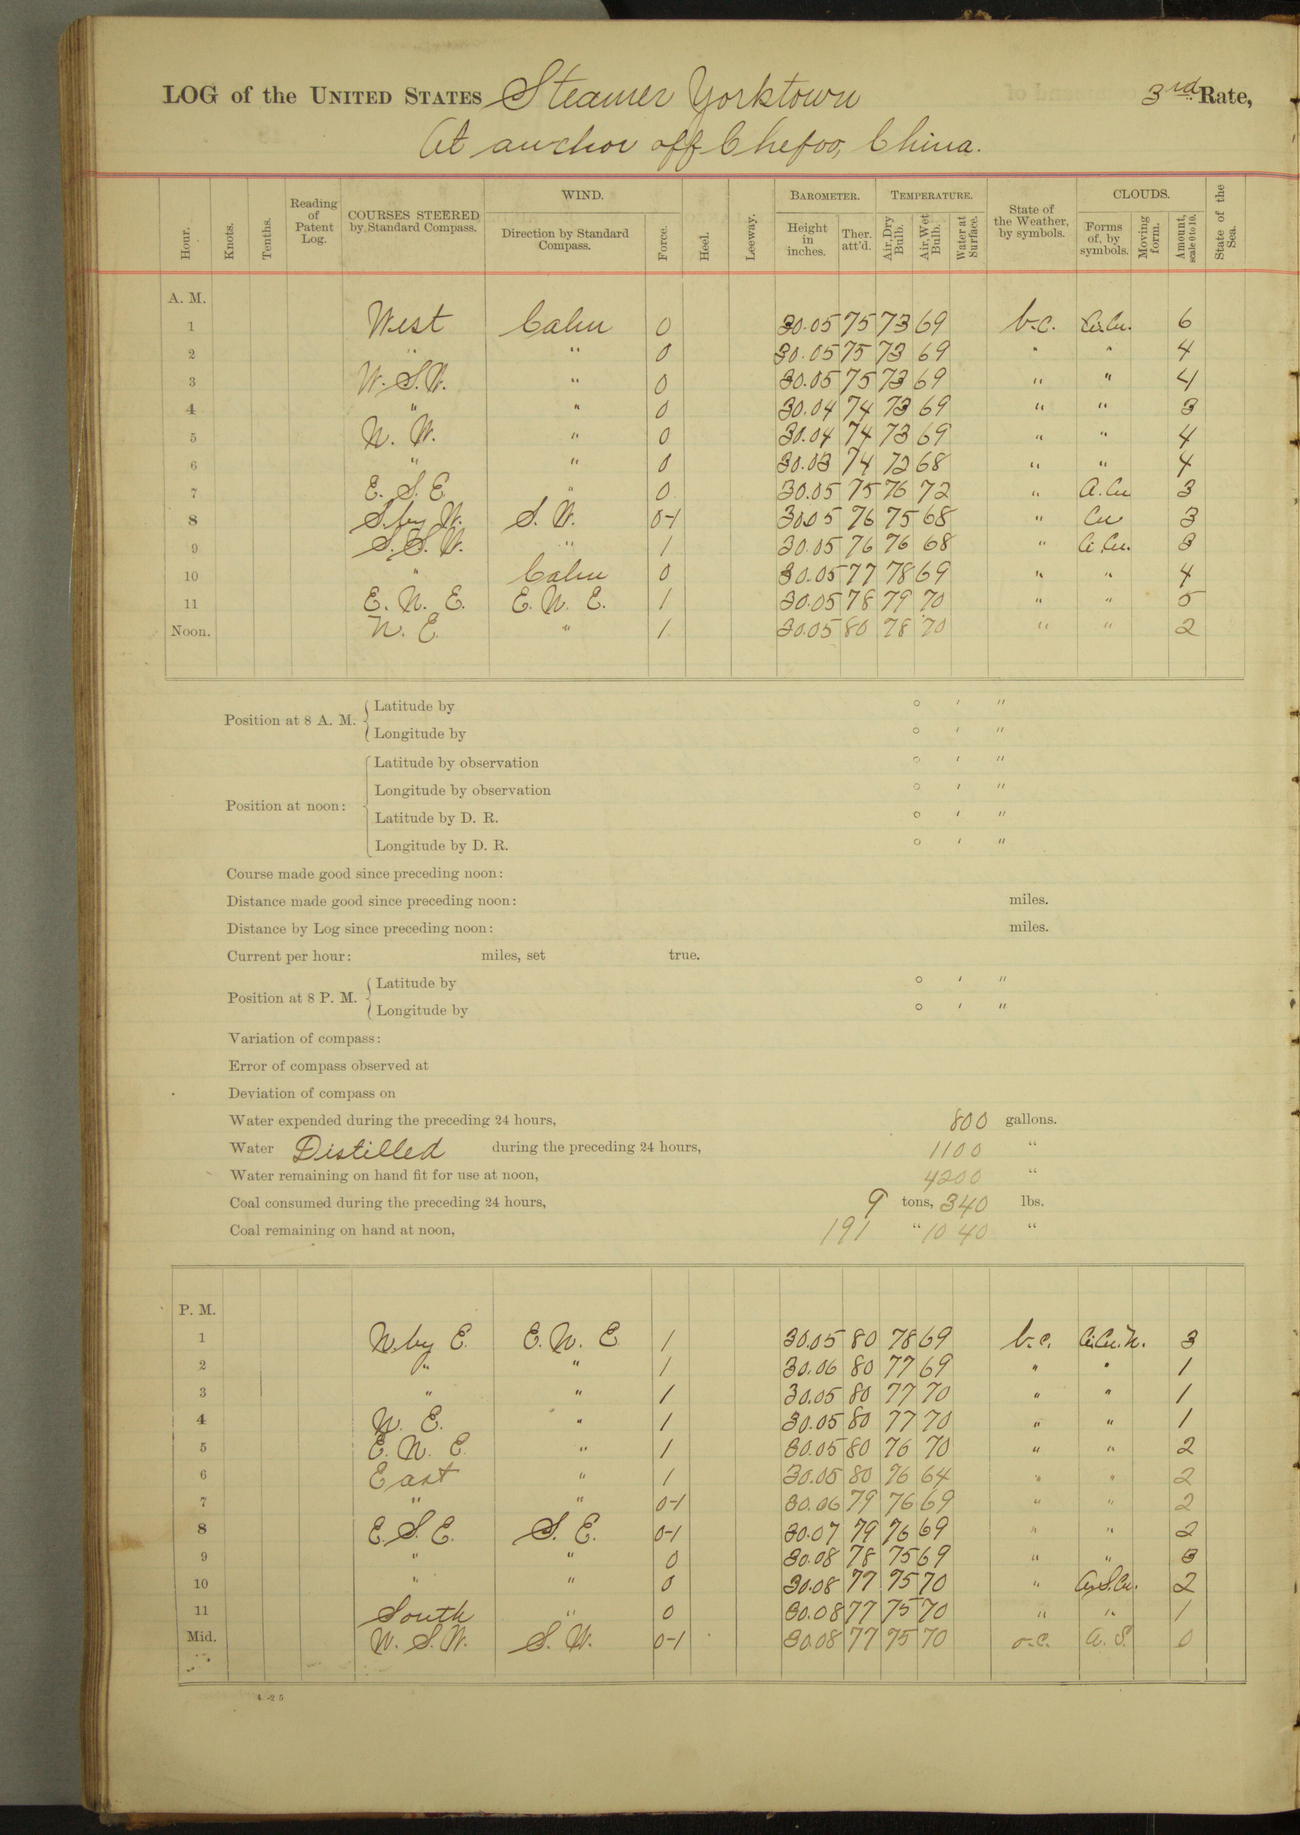 LOG of the UNITED STATES Steamer Yorktown 3rd Rate,
At anchor off Chefoo, China.
Hour. Knots. Tenths. Reading of Patent Log. COURSES STEERED by Standard Compass. WIND. Direction by Standard Compass. Force. Heel. Leeway. BAROMETER. Height in inches. Ther. att'd. TEMPERATURE. Air, Dry Bulb. Air, Wet Bulb. Water at Surface. State of the Weather, by symbols. CLOUDS. Forms of, by symbols. Moving form. Amount, scale 0 to 10. State of the Sea.
A. M.
1 West Calm 0 30.05 75 73 69 b.c. Ci.Cu. 6
2 " " 0 30.05 75 73 69 " " 4
3 W.S.W. " 0 30.05 75 73 69 " " 4
4 " " 0 30.04 74 73 69 " " 3
5 N. W. " 0 30.04 74 73 69 " " 4
6 " " 0 30.03 74 72 68 " " 4
7 E. S. E " 0 30.05 75 76 72 " A.Cu 3
8 S. by W. S. W. 0-1 30.05 76 75 68 " Cu 3
9 S.S.W. " 1 30.05 76 76 68 " Ci.Cu. 3
10 " Calm 0 30.05 77 78 69 " " 4
11 E. N. E. E. N. E. 1 30.05 78 79 70 " " 5
Noon. N. E " 1 30.05 80 78 70 " " 2
Position at 8 A. M. Latitude by ° ′ ″
Longitude by ° ′ ″
Position at noon: Latitude by observation ° ′ ″
Longitude by observation ° ′ ″
Latitude by D. R. ° ′ ″
Longitude by D. R. ° ′ ″
Course made good since preceding noon:
Distance made good since preceding noon: miles.
Distance by Log since preceding noon: miles.
Current per hour: miles, set true.
Position at 8 P. M. Latitude by ° ′ ″
Longitude by ° ′ ″
Variation of compass:
Error of compass observed at
Deviation of compass on
Water expended during the preceding 24 hours, 800 gallons.
Water Distilled during the preceding 24 hours, 1100 "
Water remaining on hand fit for use at noon, 4200 "
Coal consumed during the preceding 24 hours, 9 tons, 340 lbs.
Coal remaining on hand at noon, 191 " 1040 "
P. M.
1 N. by E. E. N. E 1 30.05 80 78 69 b.c. Ci.Cu.N. 3
2 " " 1 30.06 80 77 69 " " 1
3 " " 1 30.05 80 77 70 " " 1
4 N. E. " 1 30.05 80 77 70 " " 1
5 E. N. E. " 1 30.05 80 76 70 " " 2
6 East " 1 30.05 80 76 64 " " 2
7 " " 0-1 30.06 79 76 69 " " 2
8 E. S. E. S. E. 0-1 30.07 79 76 69 " " 2
9 " " 0 30.08 78 75 69 " " 3
10 " " 0 30.08 77 75 70 " 2
11 South " 0 30.08 77 75 70 " " 1
Mid. W. S. W. S. W. 0-1 30.08 77 75 70 o.c. A. S. 0
4-25